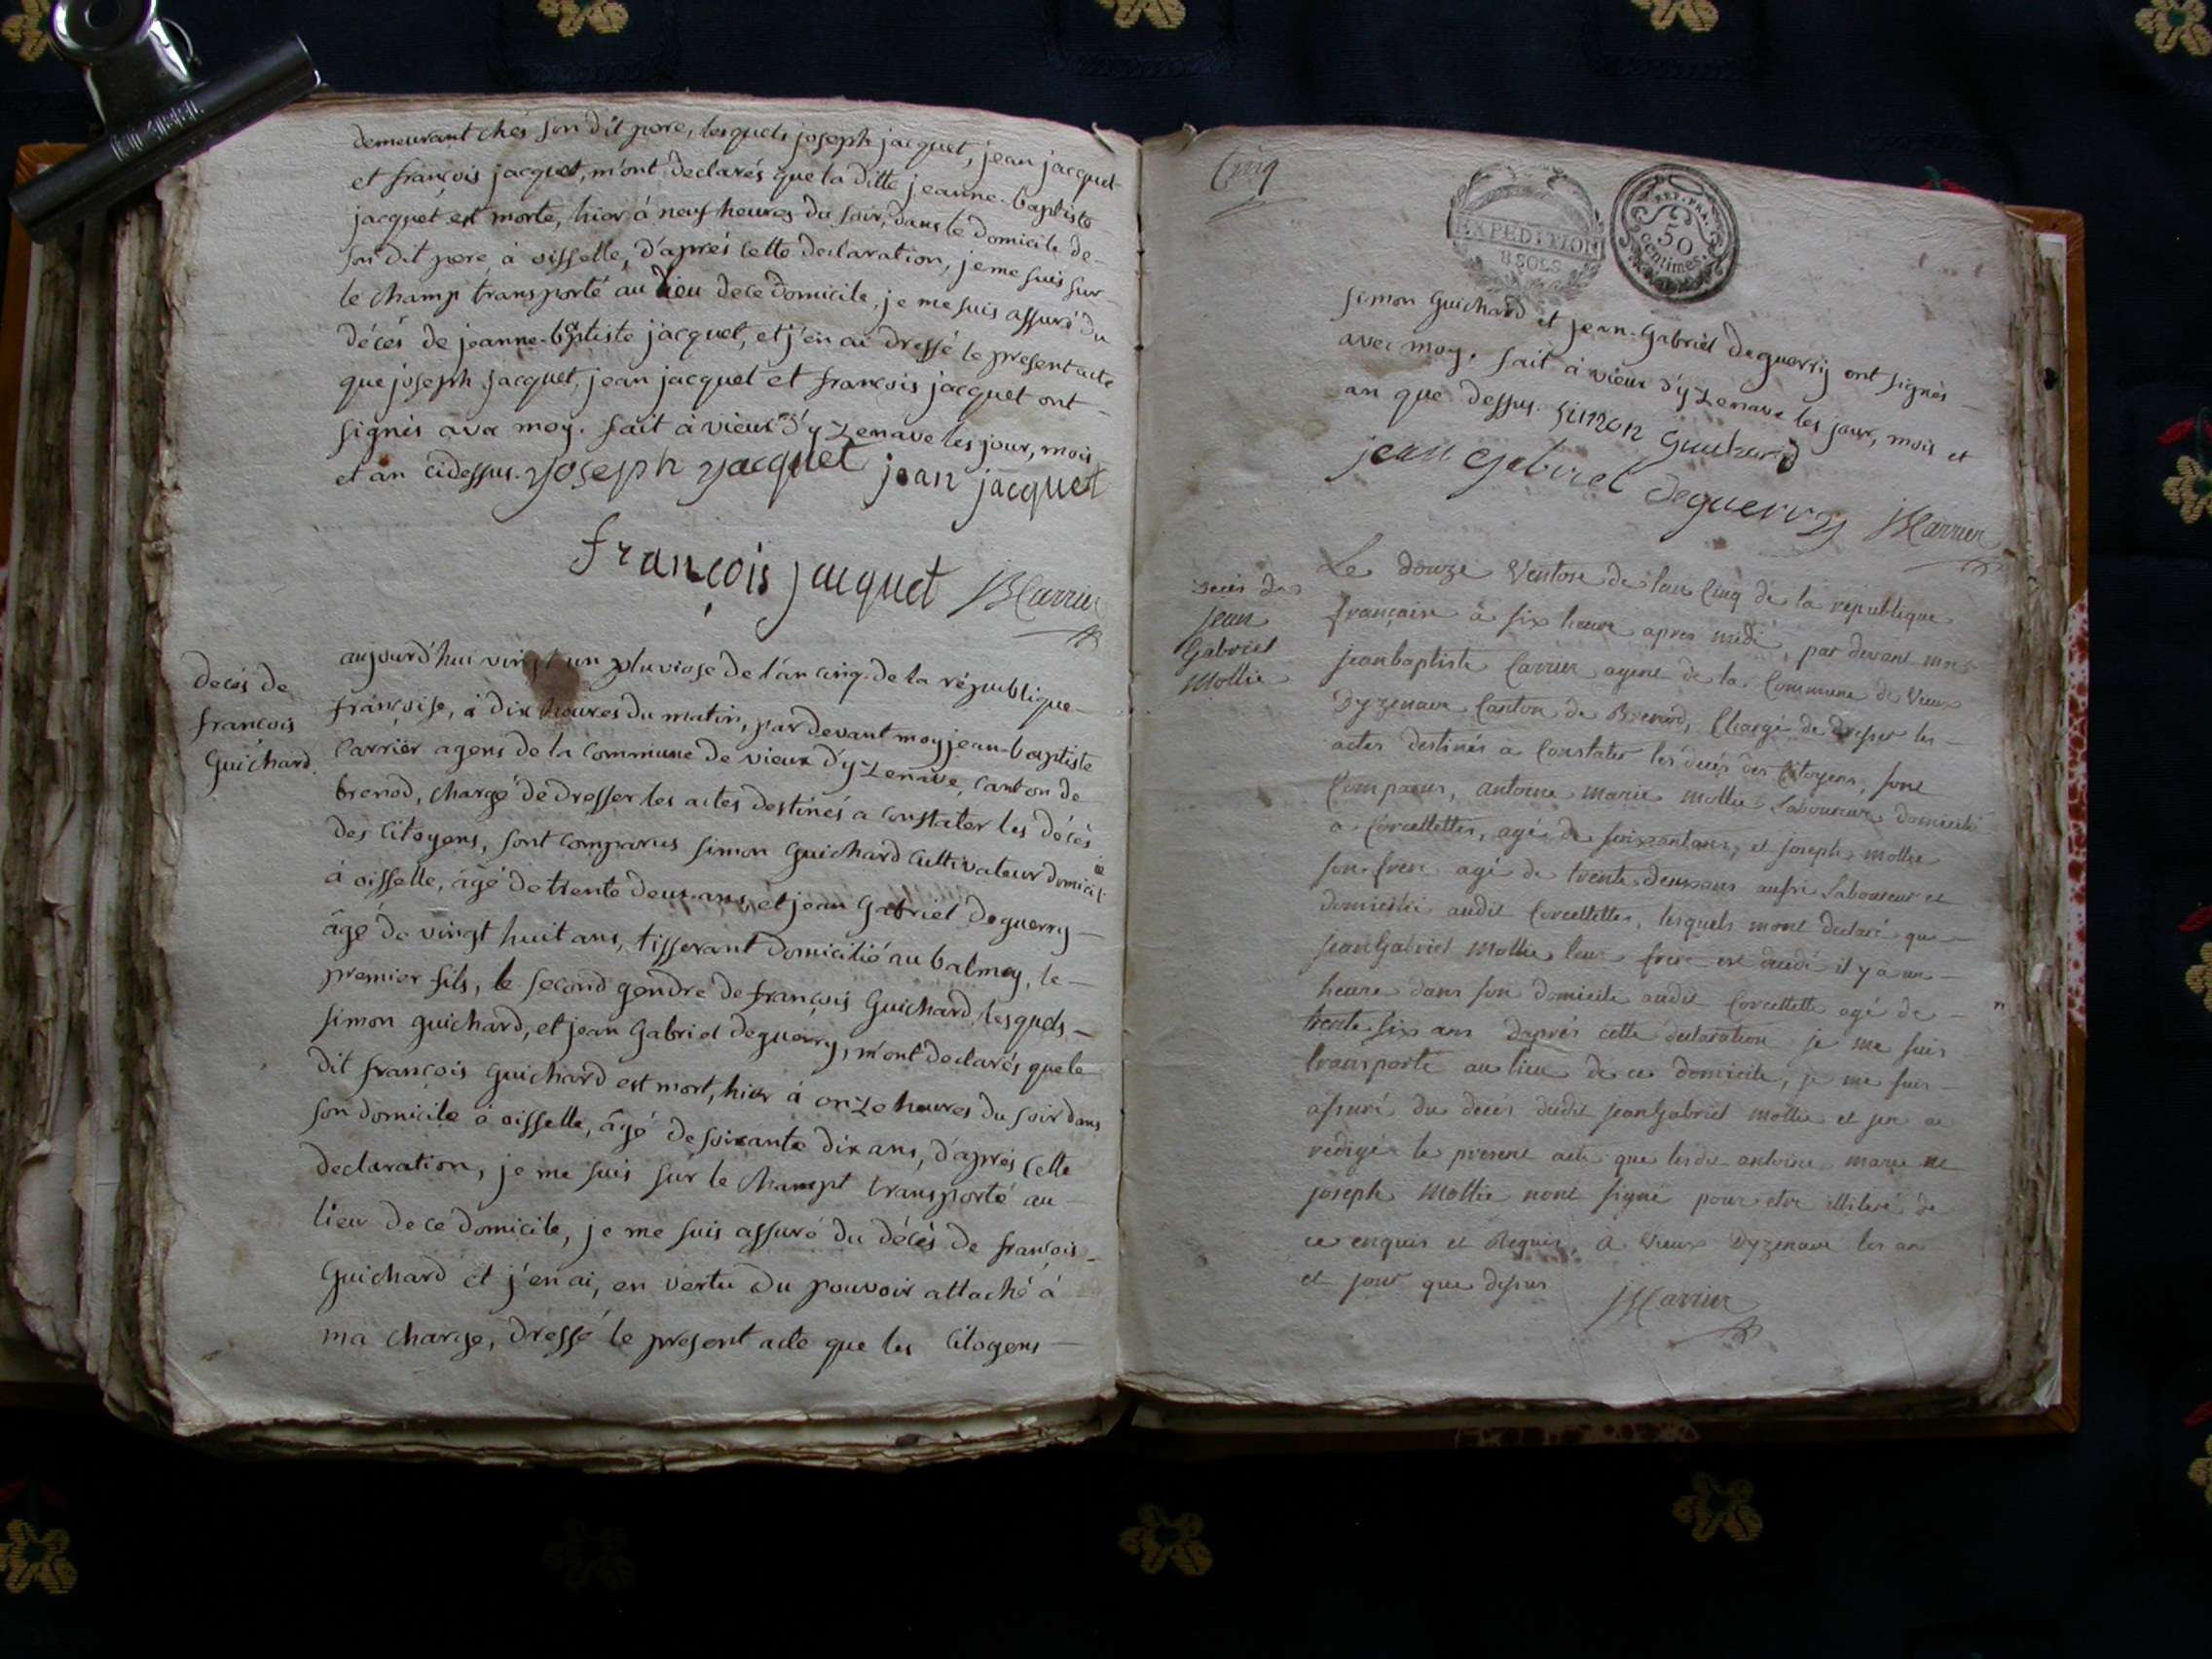 demeurant chés son dit pere, lesquels joseph jacquet, jean jacquet
et françois jacquet, m'ont declarés que la ditte jeanne-baptiste
jacquet est morte, hier à neuf heures du soir, dans le domicile de
son dit pere à oisselle, d'après cette declaration, je me suis sur
le champ transporté au lieu de ce domicile, je me suis assuré du
décés de jeanne-baptiste jacquet, et j'en ai dressé le present acte
que joseph jacquet, jean jacquet et françois jacquet ont
signés avec moy. fait à vieux d'yzenave les jour, mois
et an cidessus. joseph jacquet jean jacquet
françois jacquet JBCarrier
decés de
françois
Guichard.
aujourd'hui vingt un pluviose de l'an cinq de la république
françoise, à dix heures du matin, par devant moy jean-baptiste
Carrier agent de la Commune de vieux d'yzenave, canton de
brenod, chargé de dresser les actes destinés a constater les décès
des Citoyens, sont comparus simon Guichard Cultivateur domicilié
à oisselle, âgé de trente deux ans, et jean Gabriel deguerry
âgé de vingt huit ans, tisserant domicilié au balmay, le
premier fils, le second gendre de françois Guichard, lesquels
simon guichard, et jean Gabriel deguerry, m'ont declarés que le
dit françois Guichard est mort, hier à onze heures du soir dans
son domicile à oisselle, âgé de soixante dix ans, d'après cette
declaration, je me suis sur le champt transporté au
lieu de ce domicile, je me suis assuré du décès de françois
Guichard et j'en ai, en vertu du pouvoir attaché à
ma charge, dressé le present acte que les Citoyens
Cinq
EXPEDITION
8 SOLS
REP. FRA.
50
centimes.
simon Guichard et jean-Gabriel deguerry ont signés
avec moy. fait à vieux d'yzenave les jour, mois et
an que dessus. simon Guichard
jean gabriel deguerry JBCarrier
Decès de
Jean
Gabriel
Mollie
Le douze Ventose de l'an Cinq de la republique
françaire à six heure apres midi, par devant moi
jeanbaptiste Carrier agent de la Commune de Vieux
Dyzenave Canton de Brenod, Chargé de dresser les
actes destinés a Constater les decès des Citoyens, sont
Comparus, antoine marie mollie Laboureur domicilié
a Corcellettes, agé de soixantans, et joseph mollie
son frere agé de trente deuxans aussi Laboureur et
domicilié audit Corcellettes, lesquels mont declaré que
jeanGabriel Mollie leur frere est decedé il y a une
heure dans son domicile audit Corcellette agé de
trente six ans d'après cette declaration je me suis
transporté au lieu de ce domicile, je me suis
assuré du decès dudit jeanGabriel mollie et jen ai
redigé le present acte que lesdit antoine marie et
joseph Mollie nont signé pour etre illiteré de
ce enquis et Requis, a Vieux Dyzenave les an
et jour que dessus JBCarrier